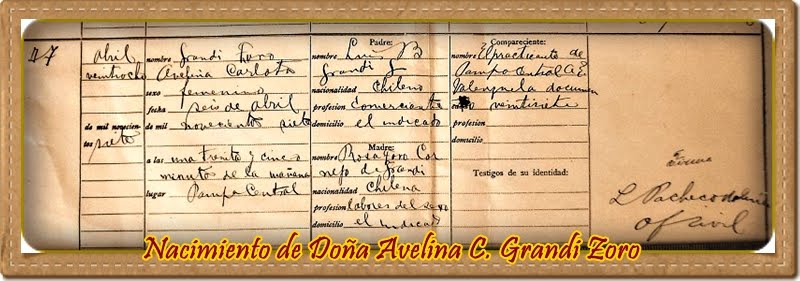 47
abril
veintiocho
de mil novecien-
tos siete
nombre Grandi Zoro
Avelina Carlota
sexo femenino
fecha seis de abril
de mil novecientos siete
a las una treinta y cinco
minutos de la mañana
lugar Pampa Central
Padre:
nombre Luis B
Grandi G
nacionalidad Chileno
profesion Comerciante
domicilio el indicado
Madre:
nombre Rosa Zoro Cor
nejo de Grandi
nacionalidad Chilena
profesion labores del sexo
domicilio el indicado
Compareciente:
nombre El practicante de
Pampa Central
Valenzuela documen
veintisiete
profesion
domicilio
Testigos de su identidad:
L Pacheco
Of civil
Nacimiento de Doña Avelina C. Grandi Zoro